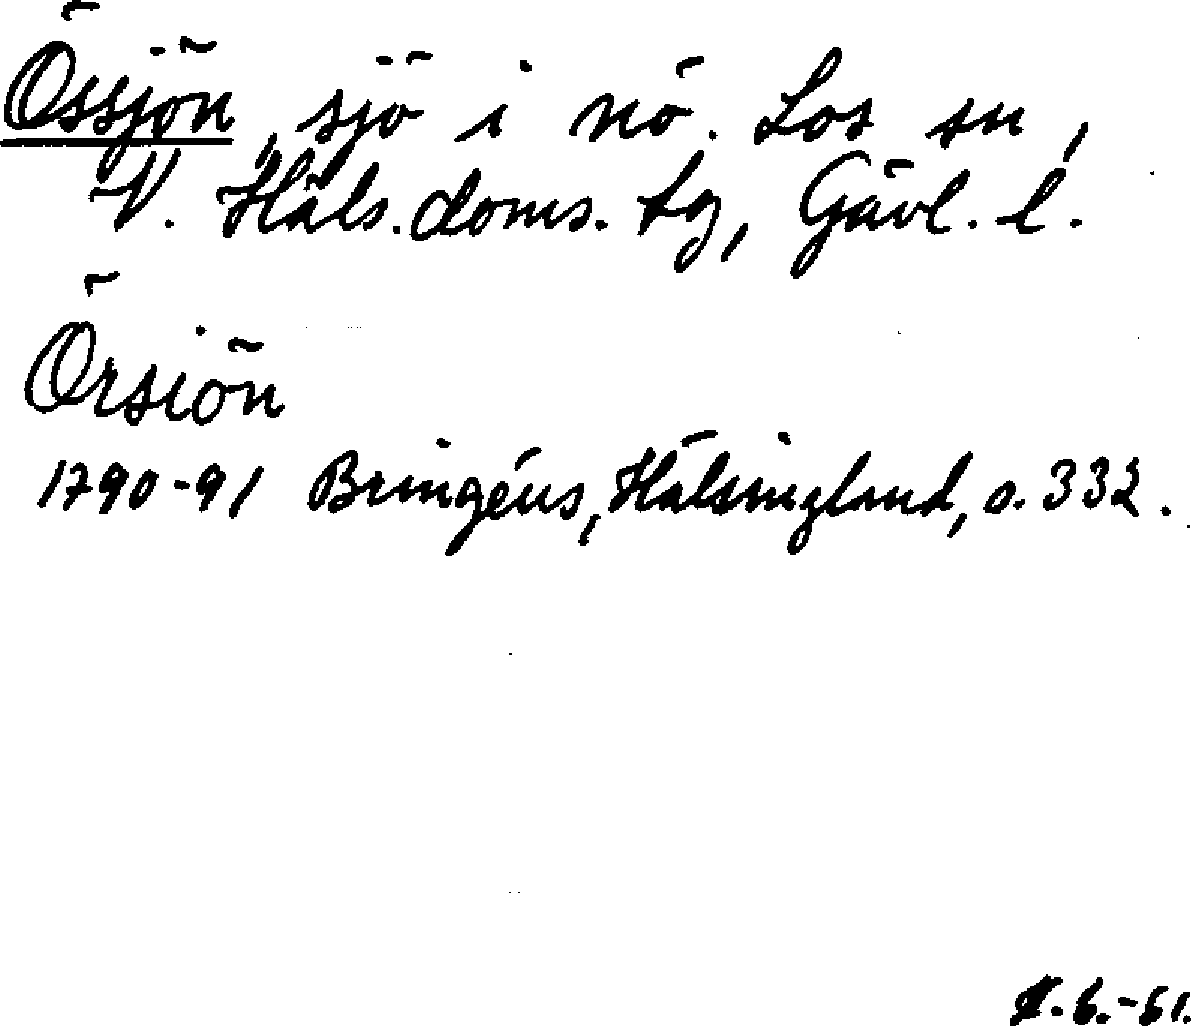 Össjön, sjö i nö. Los sn,
V. Häls. doms. tg, Gävl. l.
Örsiön
1790-91 Bringéus, Hälsingland, s. 332.
6.-61.